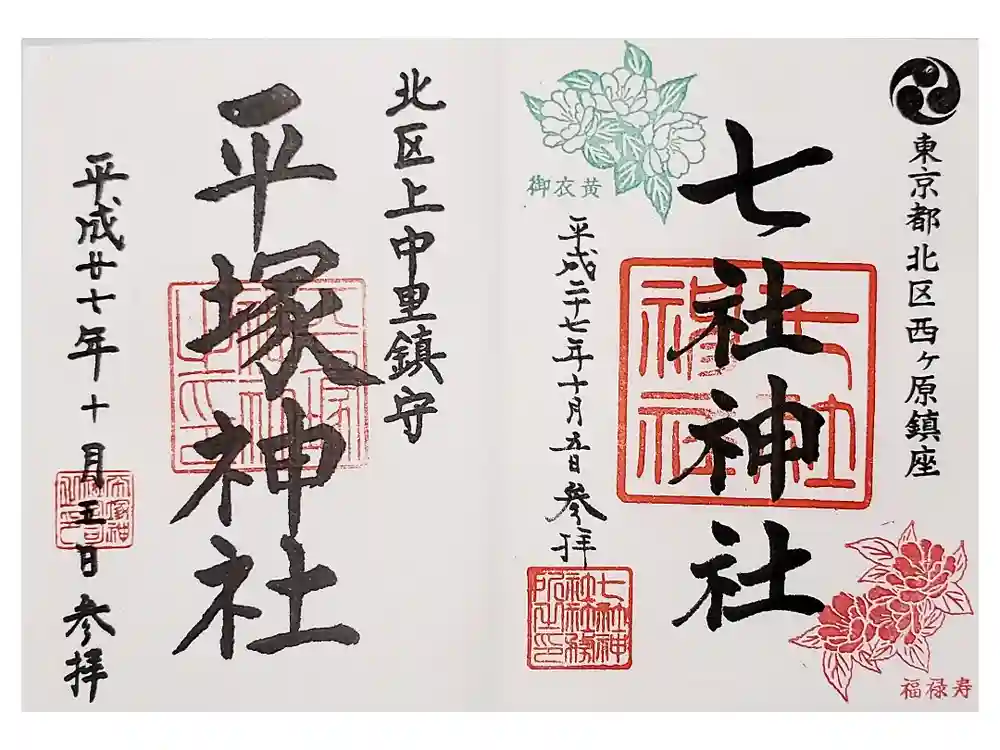 東京都北区西ヶ原鎮座
七社神社
御衣黄
平成二十七年十月五日参拝
七社神社
社務所之印
福禄寿
北区上中里鎮守
平塚神社
平成廿七年十月五日参拝